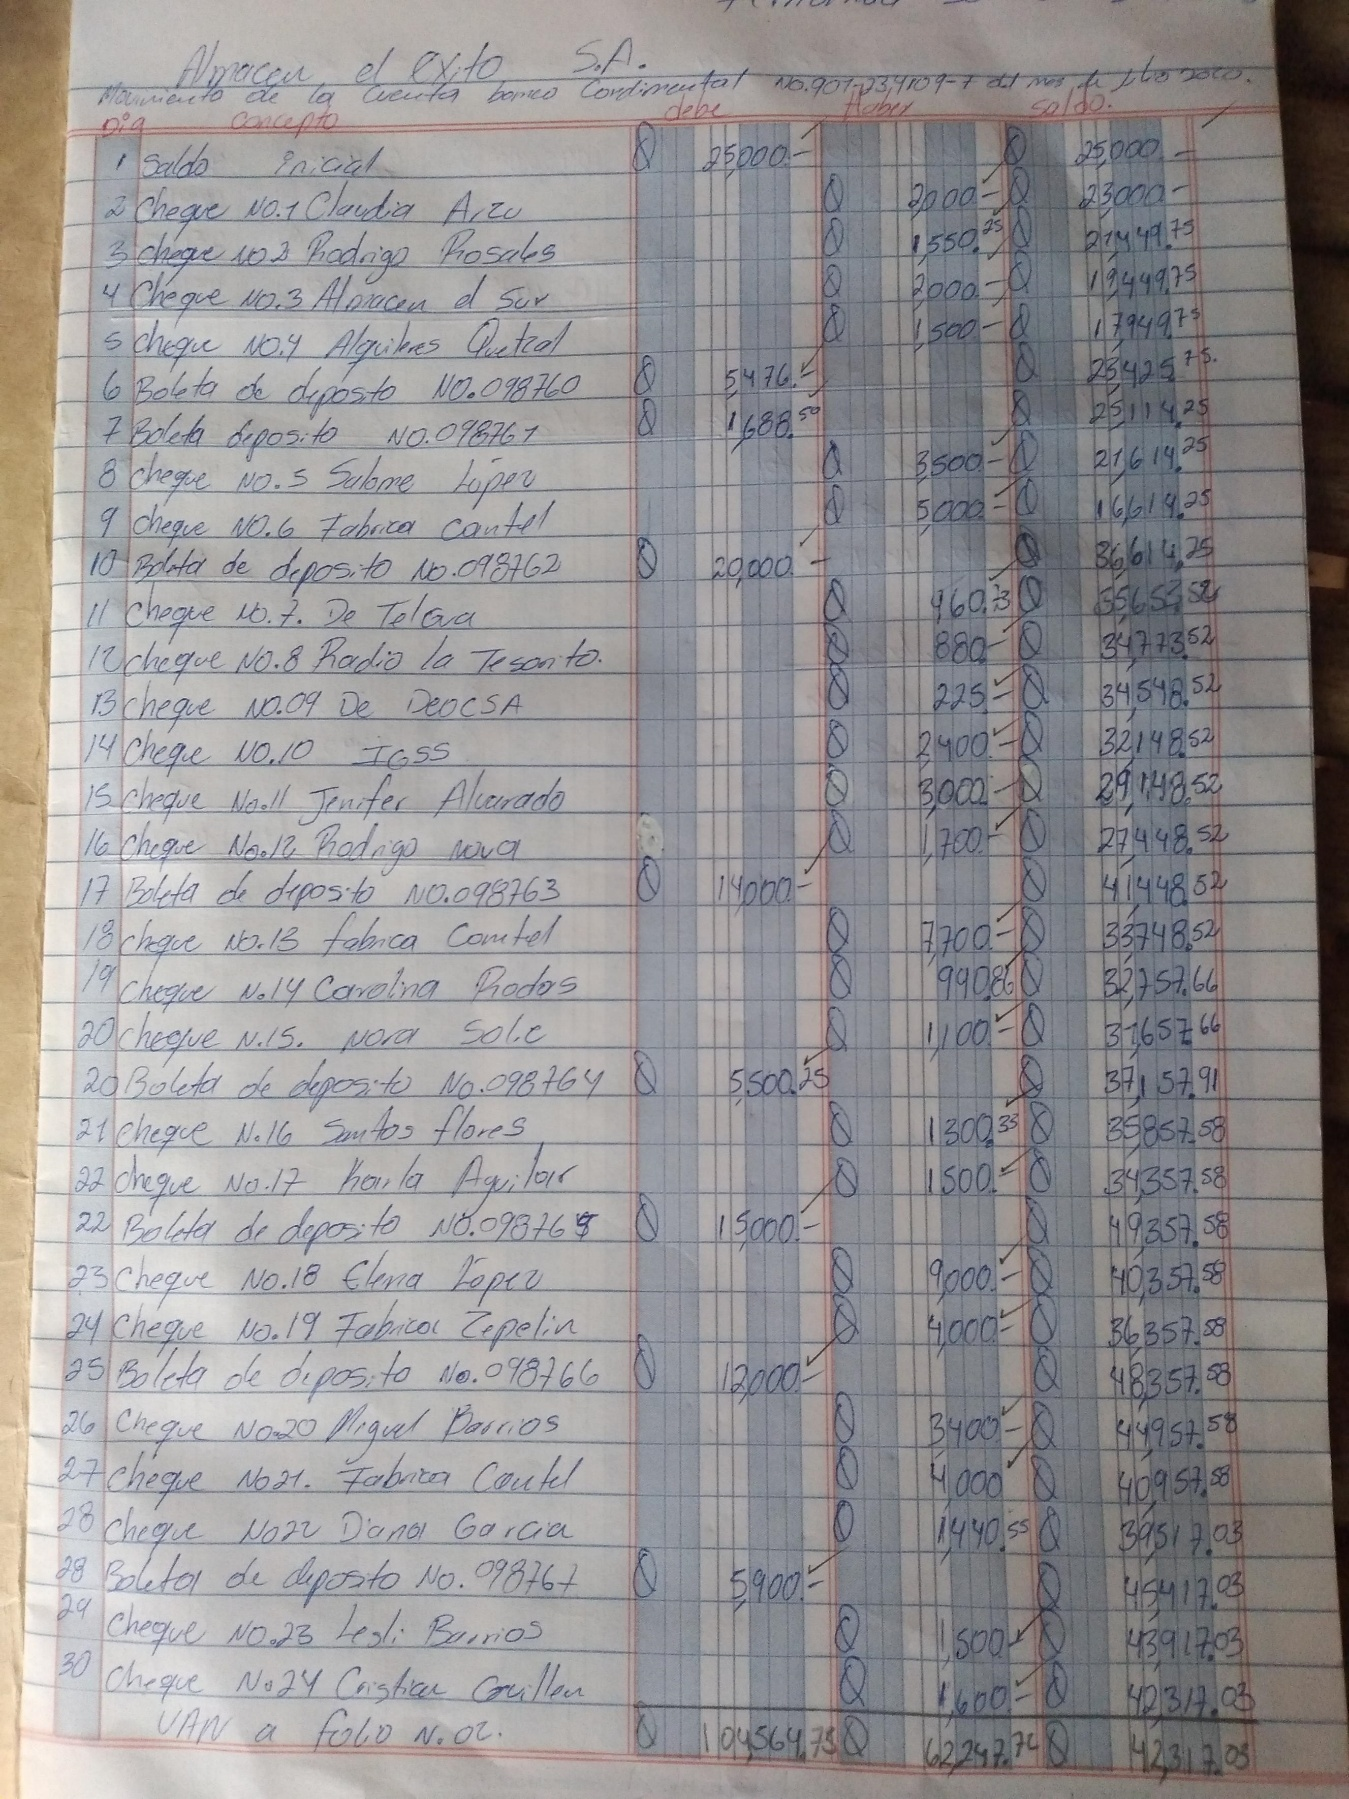 Almacen el exito S.A.
Movimiento de la cuenta banco Continental No.901-234109-7 del mes de 2020.
Dia Concepto debe Haber Saldo.
1 Saldo inicial Q 25,000.- Q 25,000.-
2 Cheque No.1 Claudia Arzu Q 2,000.- Q 23,000.-
3 cheque No 2 Rodrigo Rosales Q 1,550.25 Q 21,449.75
4 Cheque No.3 Almacen el Sur Q 2,000.- Q 19,449.75
5 cheque No.4 Alquileres Quetzal Q 1,500.- Q 17,949.75
6 Boleta de deposito No.098760 Q 5,476.- Q 23,425.75.
7 Boleta deposito No.098761 Q 1,688.50 Q 25,114.25
8 cheque No.5 Salome López Q 3,500.- Q 21,614.25
9 cheque No.6 Fabrica Cantel Q 5,000.- Q 16,614.25
10 Boleta de deposito No.098762 Q 20,000.- Q 36,614.25
11 cheque No.7. De Telgua Q 960.73 Q 35,653.52
12 cheque No.8 Radio la Tesorito. Q 880.- Q 34,773.52
13 cheque No.09 De DEOCSA Q 225.- Q 34,548.52
14 Cheque No.10 IGSS Q 2,400.- Q 32,148.52
15 cheque No.11 Jenifer Alvarado Q 3,000.- Q 29,148.52
16 cheque No.12 Rodrigo nova Q 1,700.- Q 27,448.52
17 Boleta de deposito No.098763 Q 14,000.- Q 41,448.52
18 cheque No.13 fabrica Cantel Q 7,700.- Q 33,748.52
19 Cheque N.14 Carolina Rodas Q 990.86 Q 32,757.66
20 cheque N.15. nora Q 1,100.- Q 31,657.66
20 Boleta de deposito No.098764 Q 5,500.25 Q 37,157.91
21 cheque N.16 Santos flores Q 1300.33 Q 35,857.58
22 cheque No.17 Karla Aguilar Q 1500.- Q 34,357.58
22 Boleta de deposito No.098765 Q 15,000.- Q 49,357.58
23 Cheque No.18 Elena López Q 9,000.- Q 40,357.58
24 Cheque No.19 Fabrica Zepelin Q 4,000.- Q 36,357.58
25 Boleta de deposito No.098766 Q 12,000.- Q 48,357.58
26 Cheque No.20 Miguel Barrios Q 3400.- Q 44,957.58
27 cheque No21. Fabrica Cantel Q 4,000 Q 40,957.58
28 Cheque No22 Diana Garcia Q 1,440.55 Q 39,517.03
28 Boleta de deposito No.098767 Q 5,900.- Q 45,417.03
29 Cheque No.23 Lesli Barrios Q 1,500.- Q 43,917.03
30 Cheque No24 Cristian Guillen Q 1,600.- Q 42,317.03
VAN a folio N.02. Q 104,564.75 Q 62,247.72 Q 42,317.03